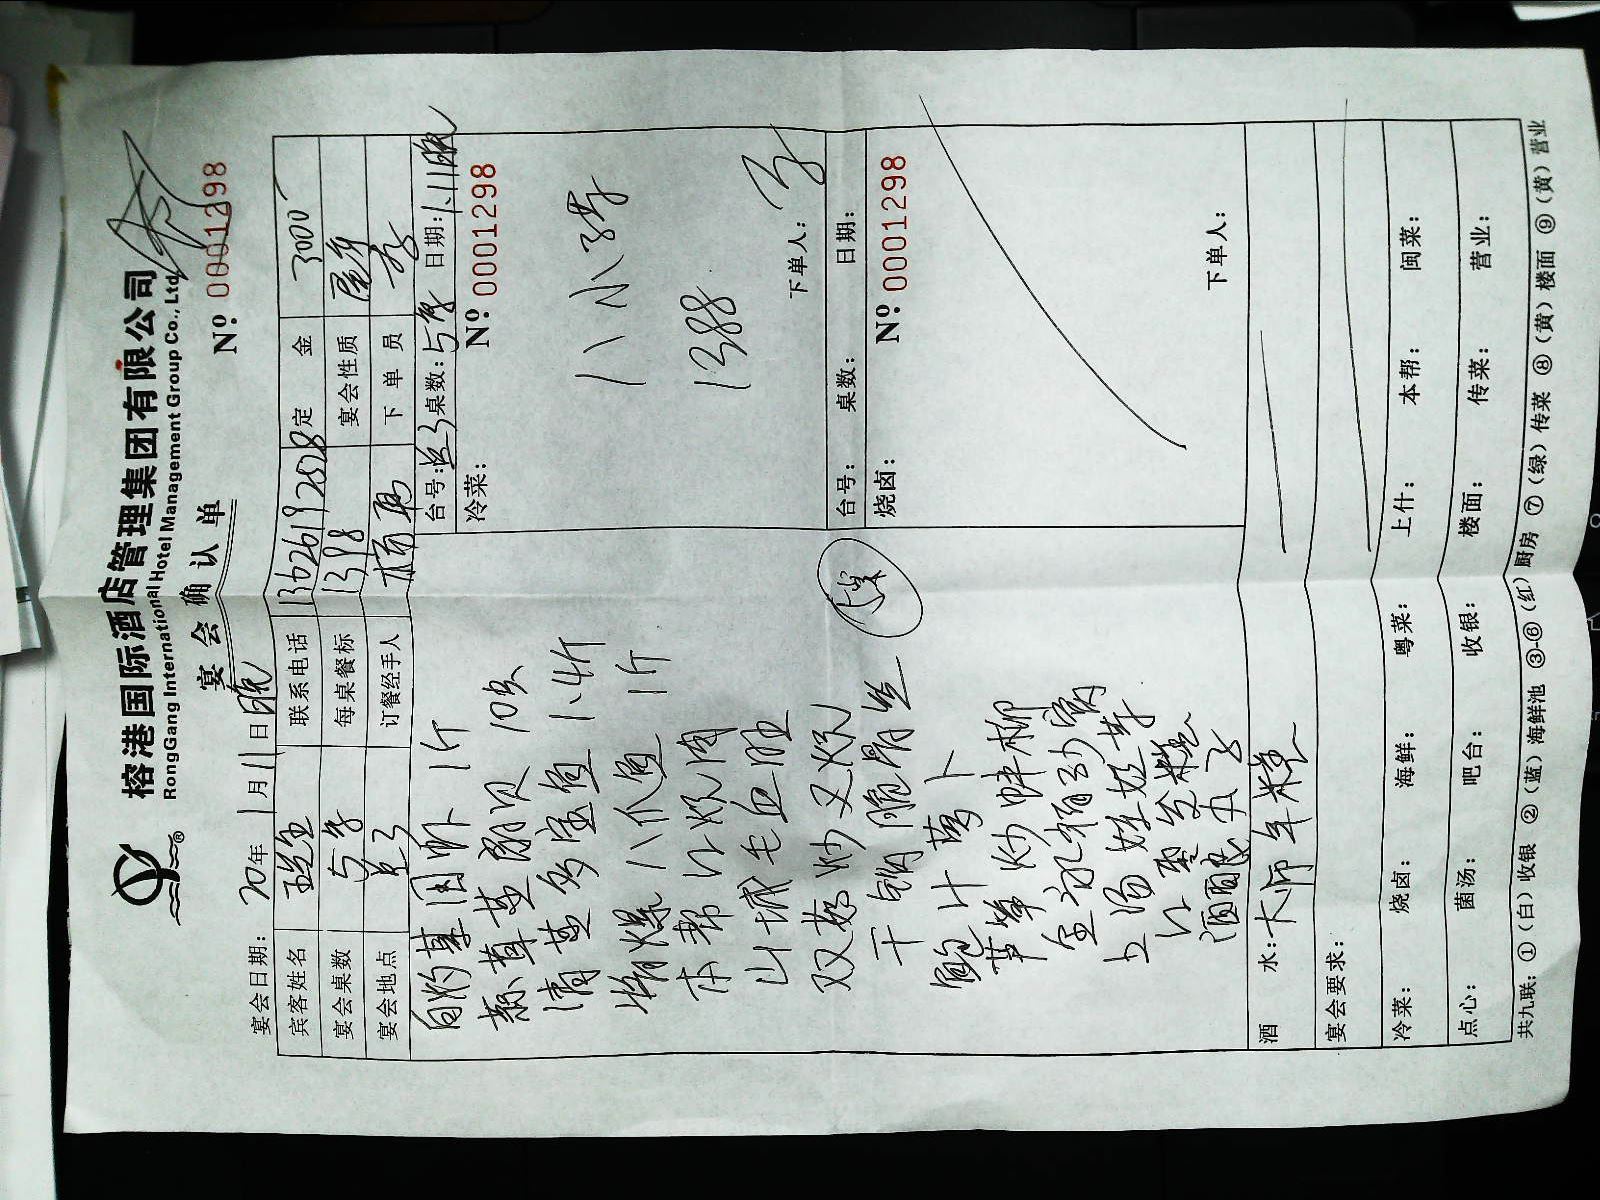 榕港国际酒店管理集团有限公司
RongGang International Hotel Management Group Co., Ltd
宴会确认单
№ 00001298
宴会日期: 20年 1月 11日 晚
宾客姓名 联系电话 13626192528 定金 3000
宴会桌数 5 每桌餐标 1398 宴会性质
宴会地点 兰3 订餐经手人 杨 下单员 李
白灼草园虾 1斤
蒜茸蒸扇贝 10只
清蒸多宝鱼 1.4斤
八爪鱼 1斤
本帮红烧肉
山城毛血旺
双菇炒叉烧
干锅脆骨
鲍汁萝卜
芦笋炒蚌柳
上汤娃娃菜
酒酿丸子
台号: 兰3 桌数: 5 日期: 1.11晚
冷菜: № 00001298
八小碟
1388
下单人:
台号: 桌数: 日期:
烧卤: № 00001298
下单人:
酒水: 大师年糕
宴会要求:
冷菜: 烧卤: 海鲜: 粤菜: 上什: 本帮: 闽菜:
点心: 菌汤: 吧台: 收银: 楼面: 传菜: 营业:
共九联: ①(白)收银 ②(蓝)海鲜池 ③-⑥(红)厨房 ⑦(绿)传菜 ⑧(黄)楼面 ⑨(黄)营业